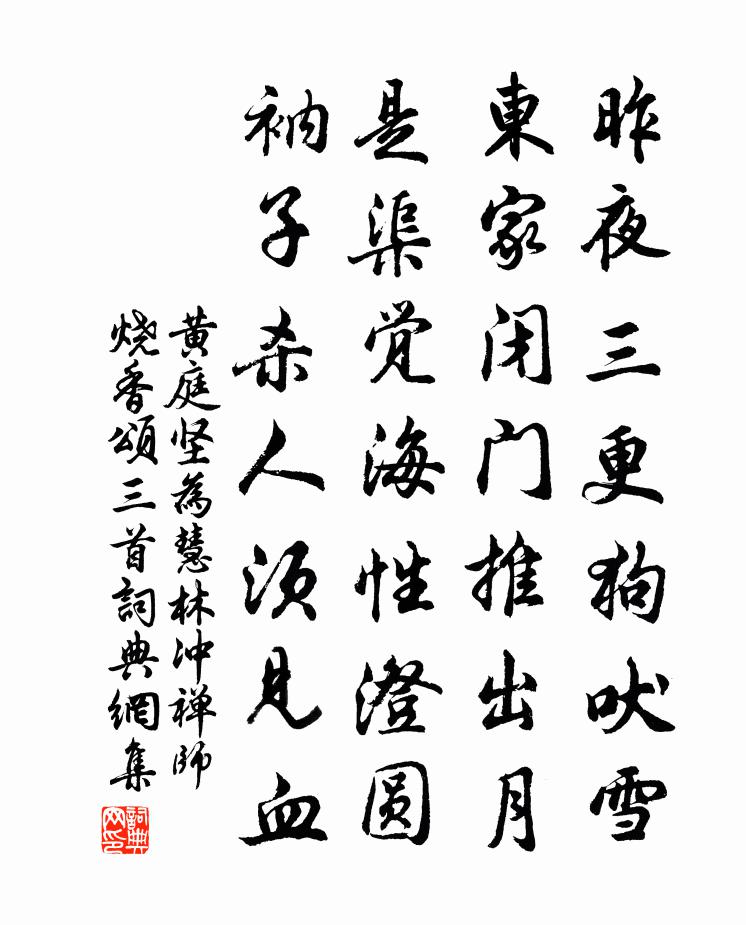 昨夜三更狗吠雪
東家闭门推出月
是渠觉海性澄圆
衲子杀人须见血
黄庭坚為慧林冲禅师
烧香颂三首詞典網集
詞典
网印